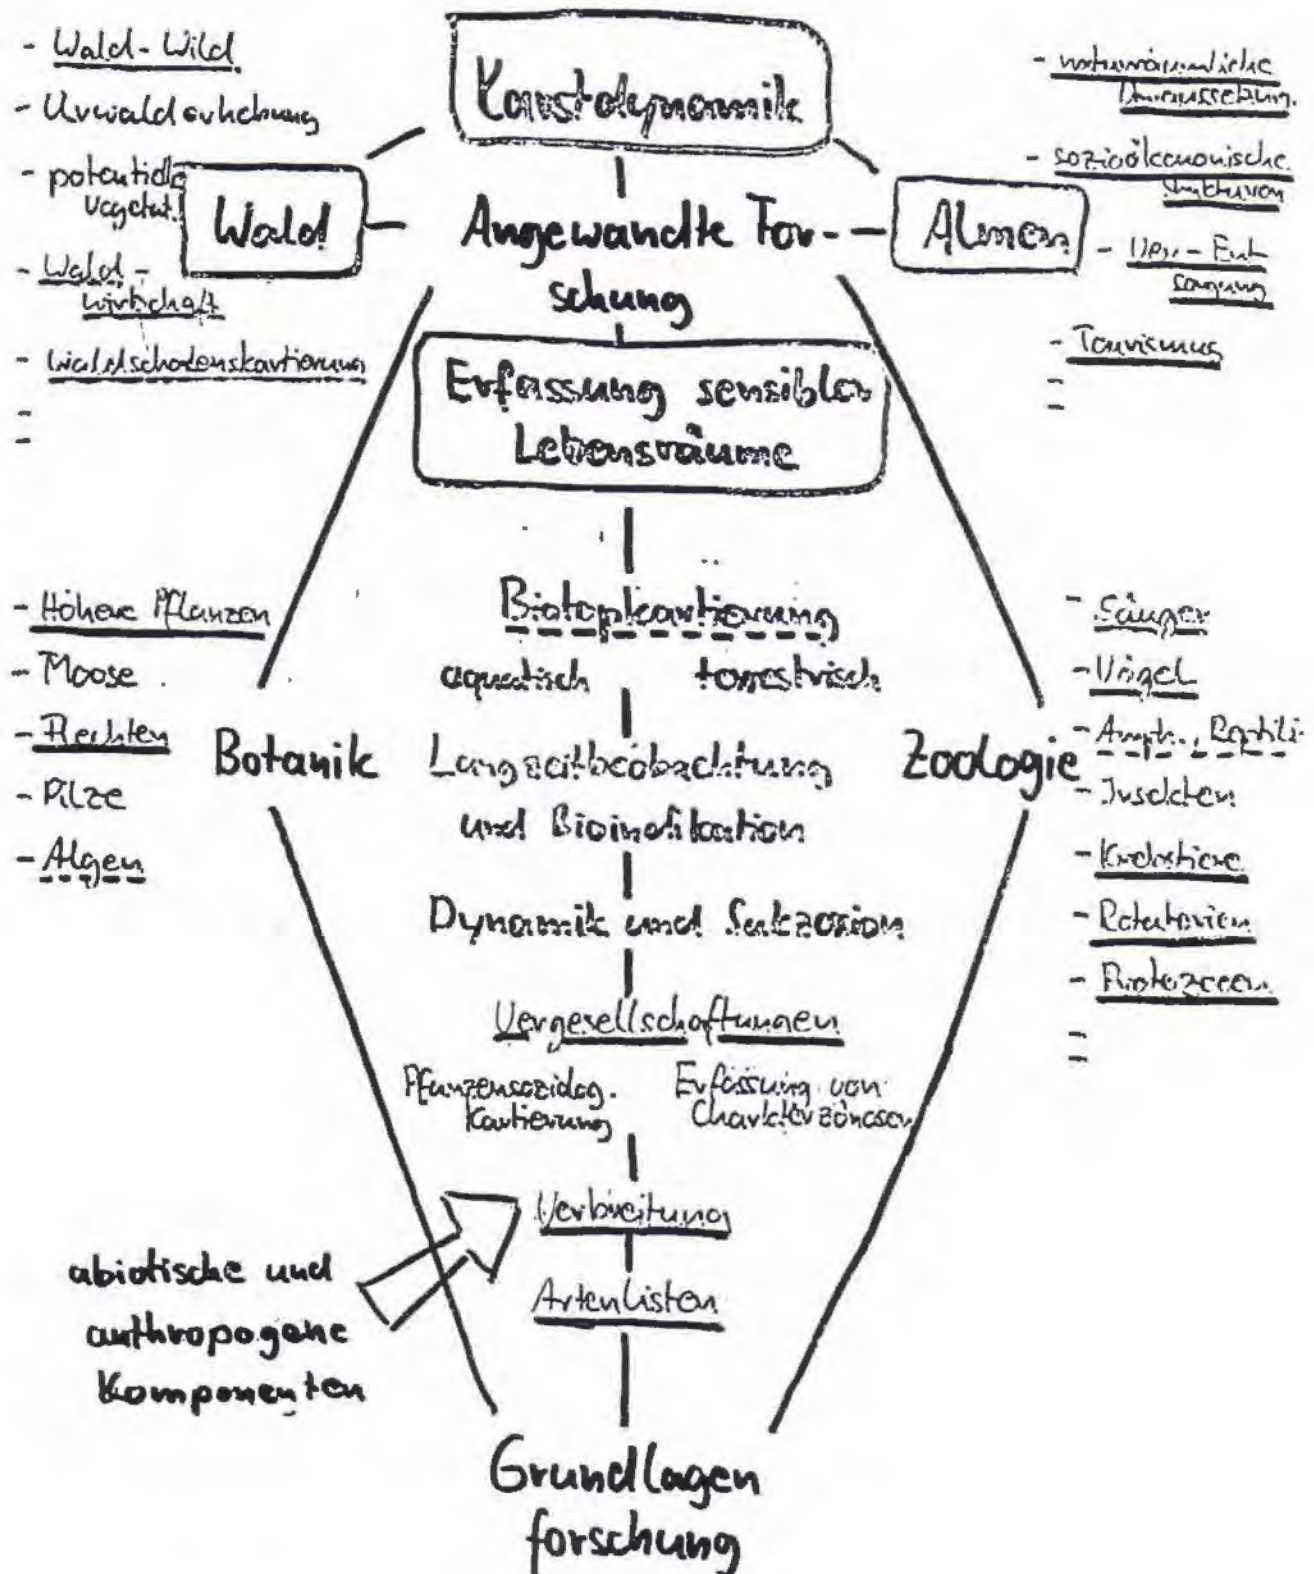 - Wald-Wild
- Urwalderhebung
- potentielle
Vegetat.
- Wald-
wirtschaft
- Waldschadenskartierung
-
-
Karstdynamik
Wald
Angewandte For-
schung
Almen
- naturräumliche
- sozioökonomische
Strukturen
- Ver-Ent
sorgung
- Tourismus
-
-
Erfassung sensibler
Lebensräume
- Höhere Pflanzen
- Moose
- Flechten
- Pilze
- Algen
Botanik
Biotopkartierung
aquatisch terrestrisch
Langzeitbeobachtung
und Bioindikation
Dynamik und Sukzession
Vergesellschaftungen
Pflanzensoziolog.
Kartierung
Erfassung von
Charakterzönosen
Verbreitung
Artenlisten
Zoologie
- Säuger
- Vögel
- Amph., Reptili-
- Insekten
- Krebstiere
- Rotatorien
- Protozoen
-
-
abiotische und
anthropogene
Komponenten
Grundlagen
forschung